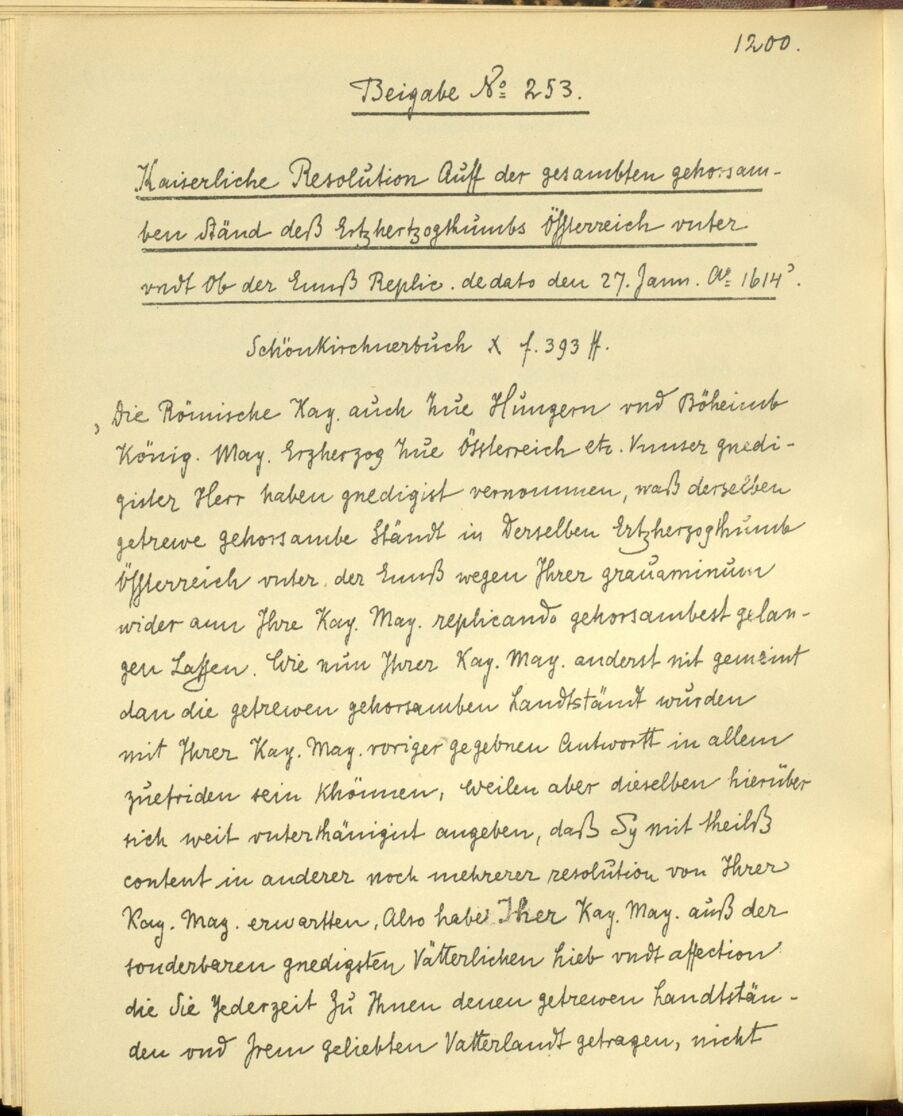 1200.
Beigabe No 253.
Kaiserliche Resolution Auff der gesambten gehorsam-
ben Ständ deß Ertzhertzogthumbs Össterreich vnter
vndt Ob der Ennß Replic. de dato den 27. Jann. Ao 1614.
Schönkirchnerbuch X f. 393 ff.
Die Römische Kay. auch Zue Hungern vnd Böheimb
König. May. Erzherzog Zue Össterreich etc. Vnnser gnedi-
gister Herr haben gnedigist vernommen, waß derselben
getrewe gehorsambe Ständt in Derselben Ertzherzogthumb
Össterreich vnter der Ennß wegen Ihrer grauaminum
wider ann Ihre Kay. May. replicando gehorsambest gelan-
gen Lassen. Wie nun Ihrer Kay. May. anderst nit gemeint
dan die getrewen gehorsamben Landtständt wurden
mit Ihrer Kay. May. voriger gegebnen Antwortt in allem
zuefriden sein Khönnen, Weilen aber dieselben hierüber
sich weit vnterthänigist angeben, daß Sy mit theilß
content in anderer noch mehrerer resolution von Ihrer
Kay. May. erwartten, Also habe Iher Kay. May. auß der
sonderbaren gnedigsten Vätterlichen Lieb vndt affection
die Sie Jederzeit Zu Ihnen denen getrewen Landtstän-
den vnd Irem geliebten Vatterlandt getragen, nicht